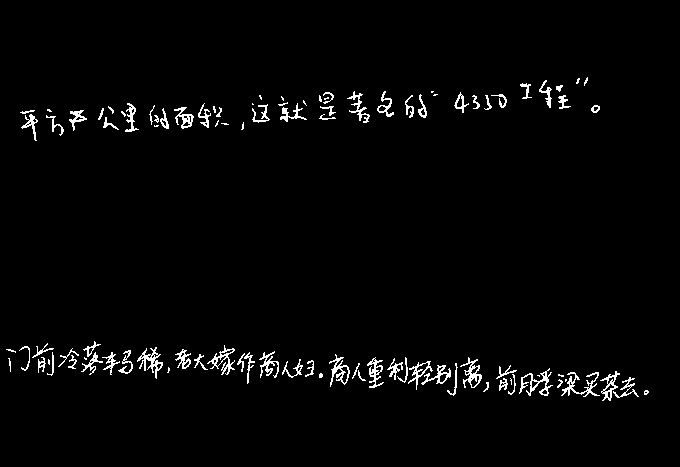 平方公里的面积,这就是著名的“4350工程”。
门前冷落车马稀,老大嫁作商人妇。商人重利轻别离,前月浮梁买茶去。